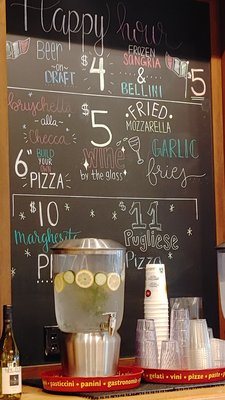 Happy hour
Beer
on
DRAFT
$4
FROZEN
SANGRIA
&
BELLINI
$5
bruschetta
alla
Checca
6" BUILD
YOUR
OWN
PIZZA
$5
wine
by the glass
FRIED
MOZZARELLA
GARLIC
fries
$10
margherita
$11
Pugliese
PIZZA
pasticcini • panini • gastronomia
gelati • vini • pizze • pasta